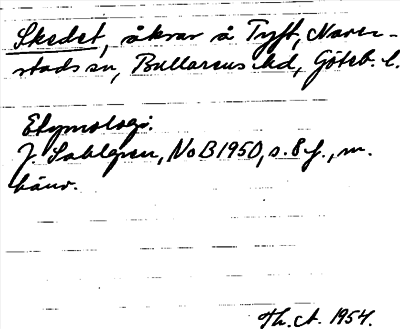 Skedet, åkrar å Tyft, Naver-
stads sn, Bullarens hd, Göteb. l.
Etymologi.
J. Sahlgren, NoB 1950, s. 8 f., m.
hänv.
Th. A. 1954.